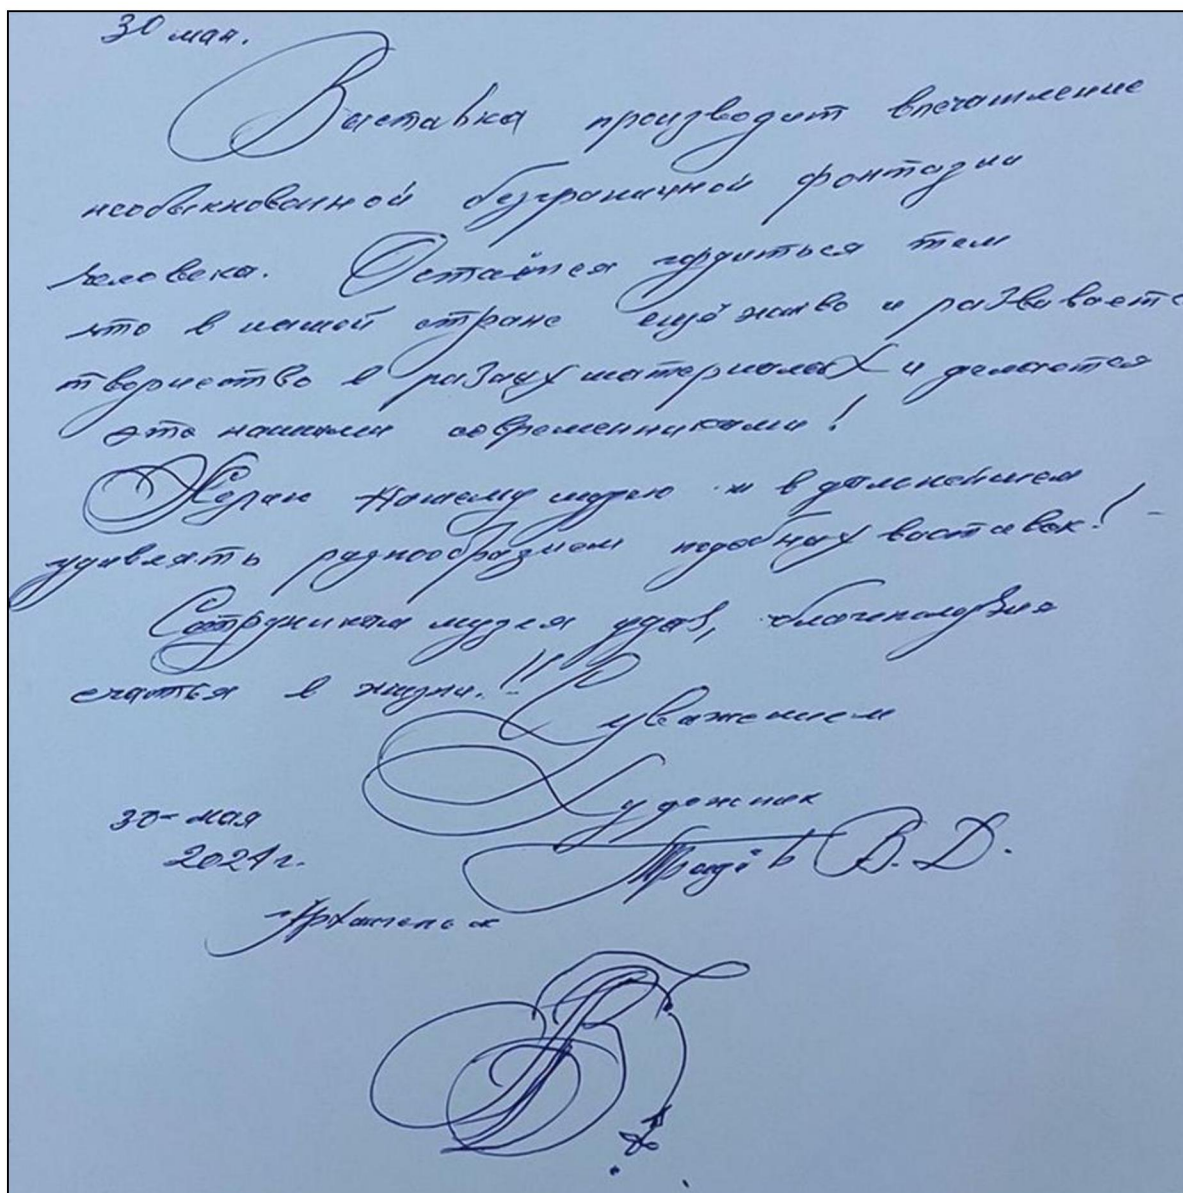 30 мая.
Выставка производит впечатление
необыкновенной безграничной фонтазии
человека. Остаётся гордиться тем
что в нашей стране ещё живо и развивается
творчество в разных материалах и делается
это нашими современниками!
Желаю Нашему музею и в дальнейшем
удивлять разнообразием подобных выставок!
Сотрудникам музея удач, благополучия
счастья в жизни.!!
С уважением
Художник
30-мая
В. Д.
2021 г.
Архангельск